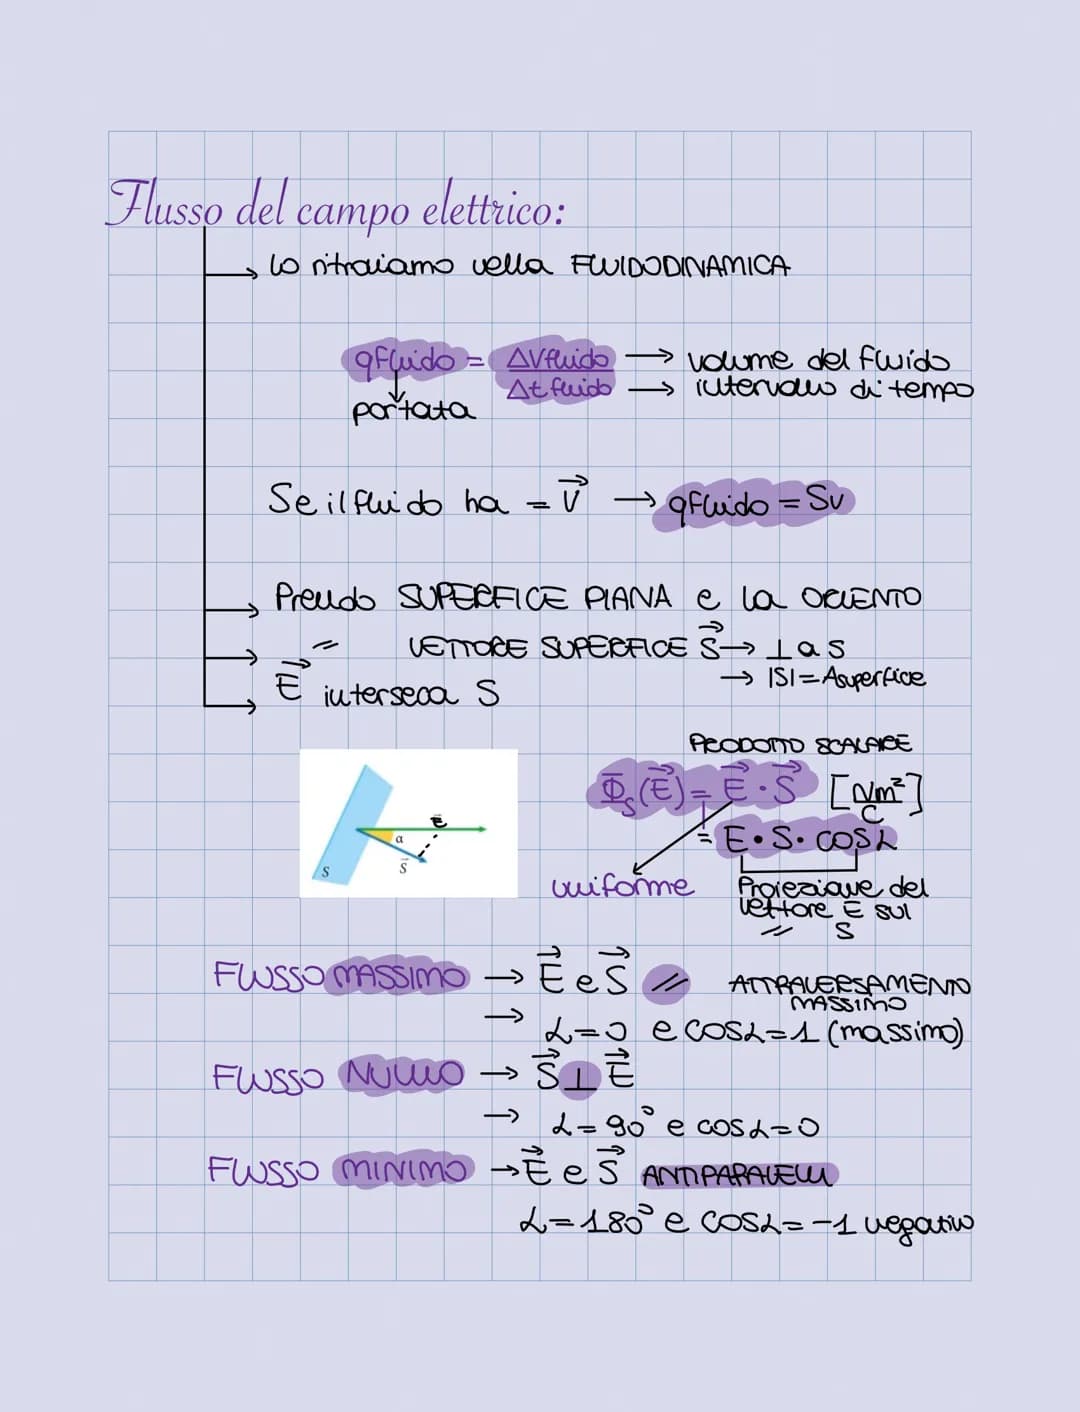 Flusso del campo elettrico:
→ lo ritroviamo nella FLUIDODINAMICA
qfluido = ΔVfluido → volume del fluido
Δt fluido → intervallo di tempo
↓
portata
Se il fluido ha = v⃗ → qfluido = Sv
→ Prendo SUPERFICE PIANA e la ORIENTO
→ // VETTORE SUPERFICE S⃗ → ⊥ a S
→ |S| = Asuperfice
→ E⃗ interseca S
PRODOTTO SCALARE
Φs(E⃗) = E⃗ · S⃗ [Nm²/C]
= E · S · cosα
E⃗
α
S⃗
S
uniforme
Proiezione del
vettore E sul
// S
FLUSSO MASSIMO → E⃗ e S⃗ // ATTRAVERSAMENTO
MASSIMO
→ α=0 e cosα=1 (massimo)
FLUSSO NULLO → S⃗ ⊥ E⃗
→ α=90° e cosα=0
FLUSSO MINIMO → E⃗ e S⃗ ANTIPARALELLI
α=180° e cosα=-1 negativo